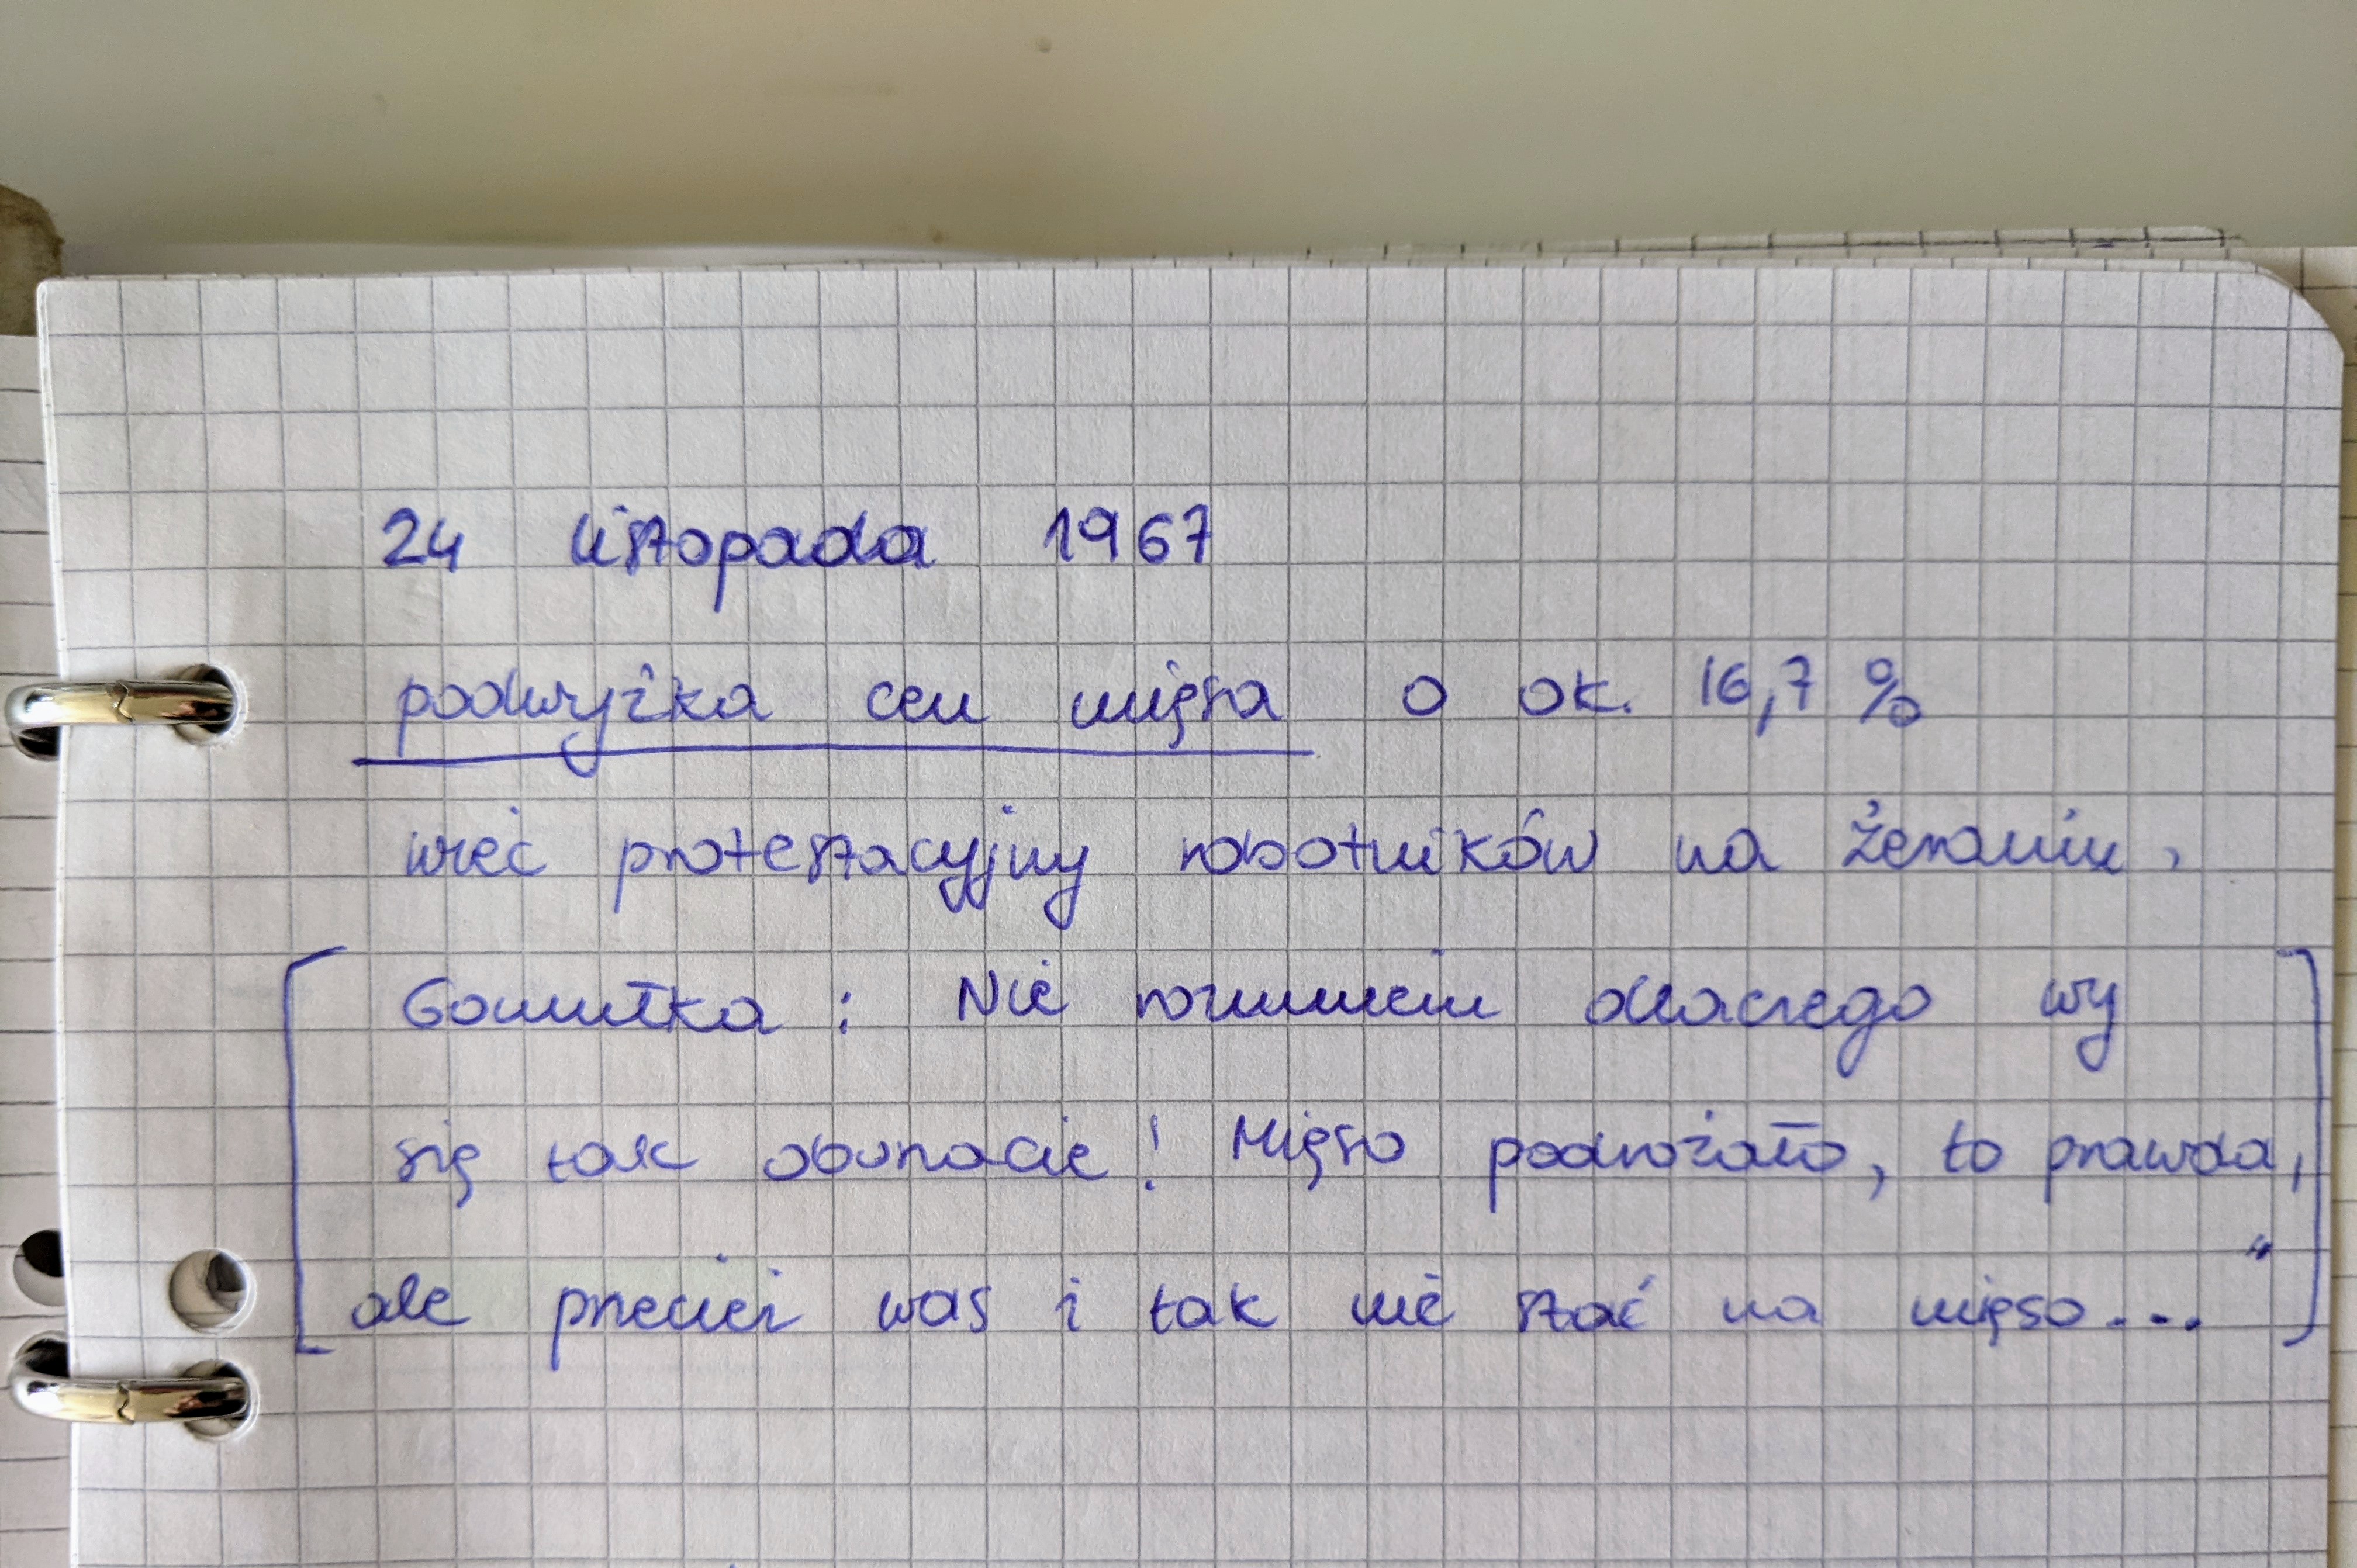 24 listopada 1967
podwyżka cen mięsa o ok. 16,7 %
wiec protestacyjny robotników na Żeraniu.
[Gomułka: Nie rozumiem dlaczego wy
się tak oburzacie! Mięso podrożało, to prawda,
ale przecież was i tak nie stać na mięso..."]